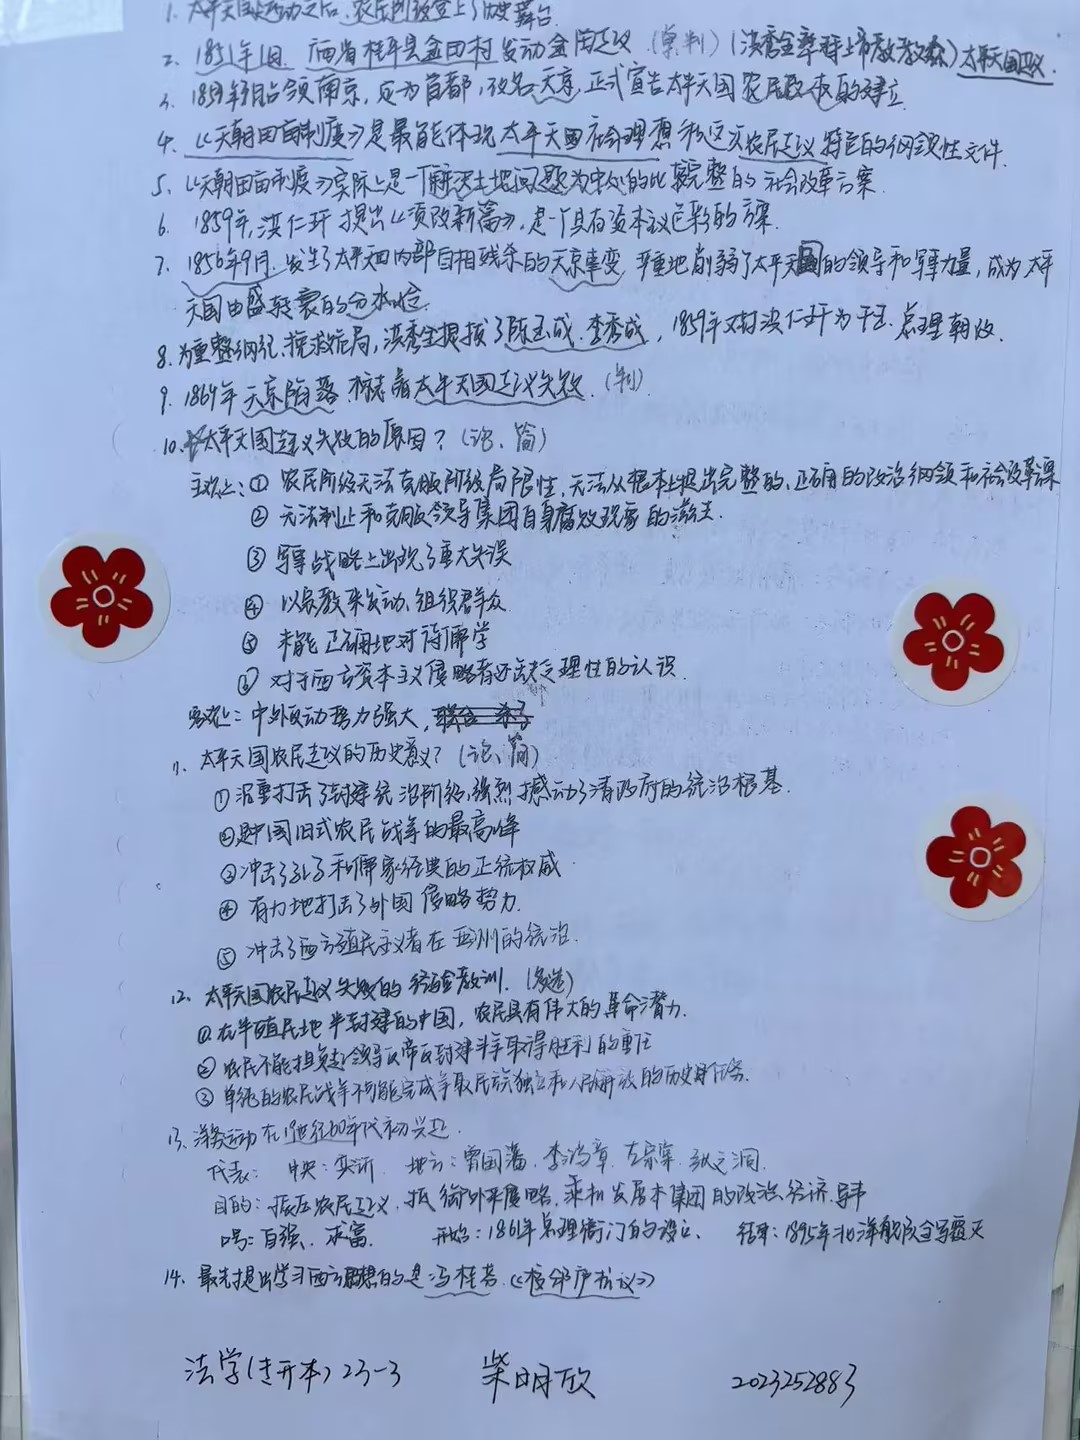 1. 太平天国运动之后，农民阶级登上了历史舞台.
2. 1851年1月，广西省桂平县金田村发动金田起义.（单判）（洪秀全率拜上帝教教众）太平天国起义.
3. 1853年3月占领南京，定为首都，改名天京，正式宣告太平天国农民政权的建立.
4. 《天朝田亩制度》是最能体现太平天国社会理想和这次农民起义特色的纲领性文件.
5. 《天朝田亩制度》实际上是一个解决土地问题为中心的比较完整的社会改革方案.
6. 1859年，洪仁玕提出《资政新篇》，是一个具有资本主义色彩的方案.
7. 1856年9月，发生了太平天国内部自相残杀的天京事变，严重地削弱了太平天国的领导和军事力量，成为太平
天国由盛转衰的分水岭.
8. 为重整纲纪、挽救危局，洪秀全提拔了陈玉成、李秀成，1859年又封洪仁玕为干王，总理朝政.
9. 1864年天京陷落，标志着太平天国起义失败.（判）
10. 太平天国起义失败的原因？（论、简）
主观上：① 农民阶级无法克服阶级局限性，无法从根本上提出完整的、正确的政治纲领和社会改革
② 无法制止和克服领导集团自身腐败现象的滋生.
③ 军事战略上出现了重大失误
④ 以宗教来发动、组织群众
⑤ 未能正确地对待儒学
⑥ 对于西方资本主义侵略者还缺乏理性的认识.
客观上：中外反动势力强大，
11. 太平天国农民起义的历史意义？（论、简）
① 沉重打击了封建统治阶级，强烈撼动了清政府的统治根基.
②是中国旧式农民战争的最高峰
③冲击了孔子和儒家经典的正统权威.
④ 有力地打击了外国侵略势力.
⑤ 冲击了西方殖民主义者在亚洲的统治.
12. 太平天国农民起义失败的经验教训.（多选）
①在半殖民地半封建的中国，农民具有伟大的革命潜力.
②农民不能担负起领导反帝反封建斗争取得胜利的重任
③ 单纯的农民战争不可能完成争取民族独立和人民解放的历史任务.
13. 洋务运动在19世纪60年代初兴起.
代表：中央：奕訢 地方：曾国藩、李鸿章、左宗棠、张之洞.
目的：镇压农民起义，抵御外来侵略，乘机发展本集团的政治、经济、军事
口号：自强、求富. 开始：1861年总理衙门的设立、 结束：1895年北洋舰队全军覆灭
14. 最先提出学习西方思想的是冯桂芬《校邠庐抗议》
法学(专升本)23-3 柴明欣 2023252883